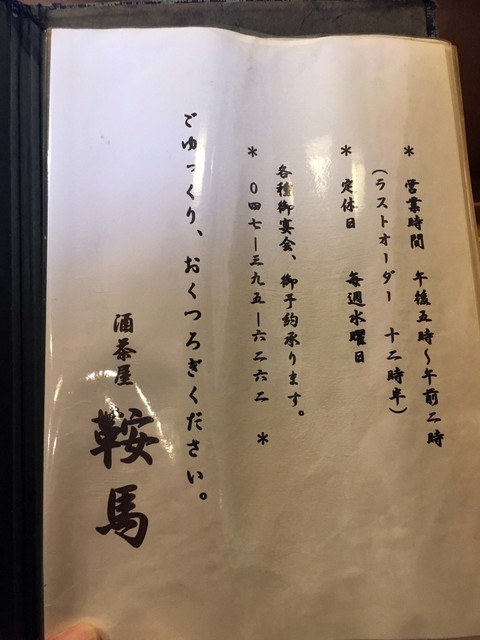 * 営業時間 午後五時～午前二時
(ラストオーダー 十二時半)
* 定休日 毎週水曜日
各種御宴会、御予約承ります。
* 〇四七ー三九五ー六二六二 *
ごゆっくり、おくつろぎください。
酒茶屋 鞍馬